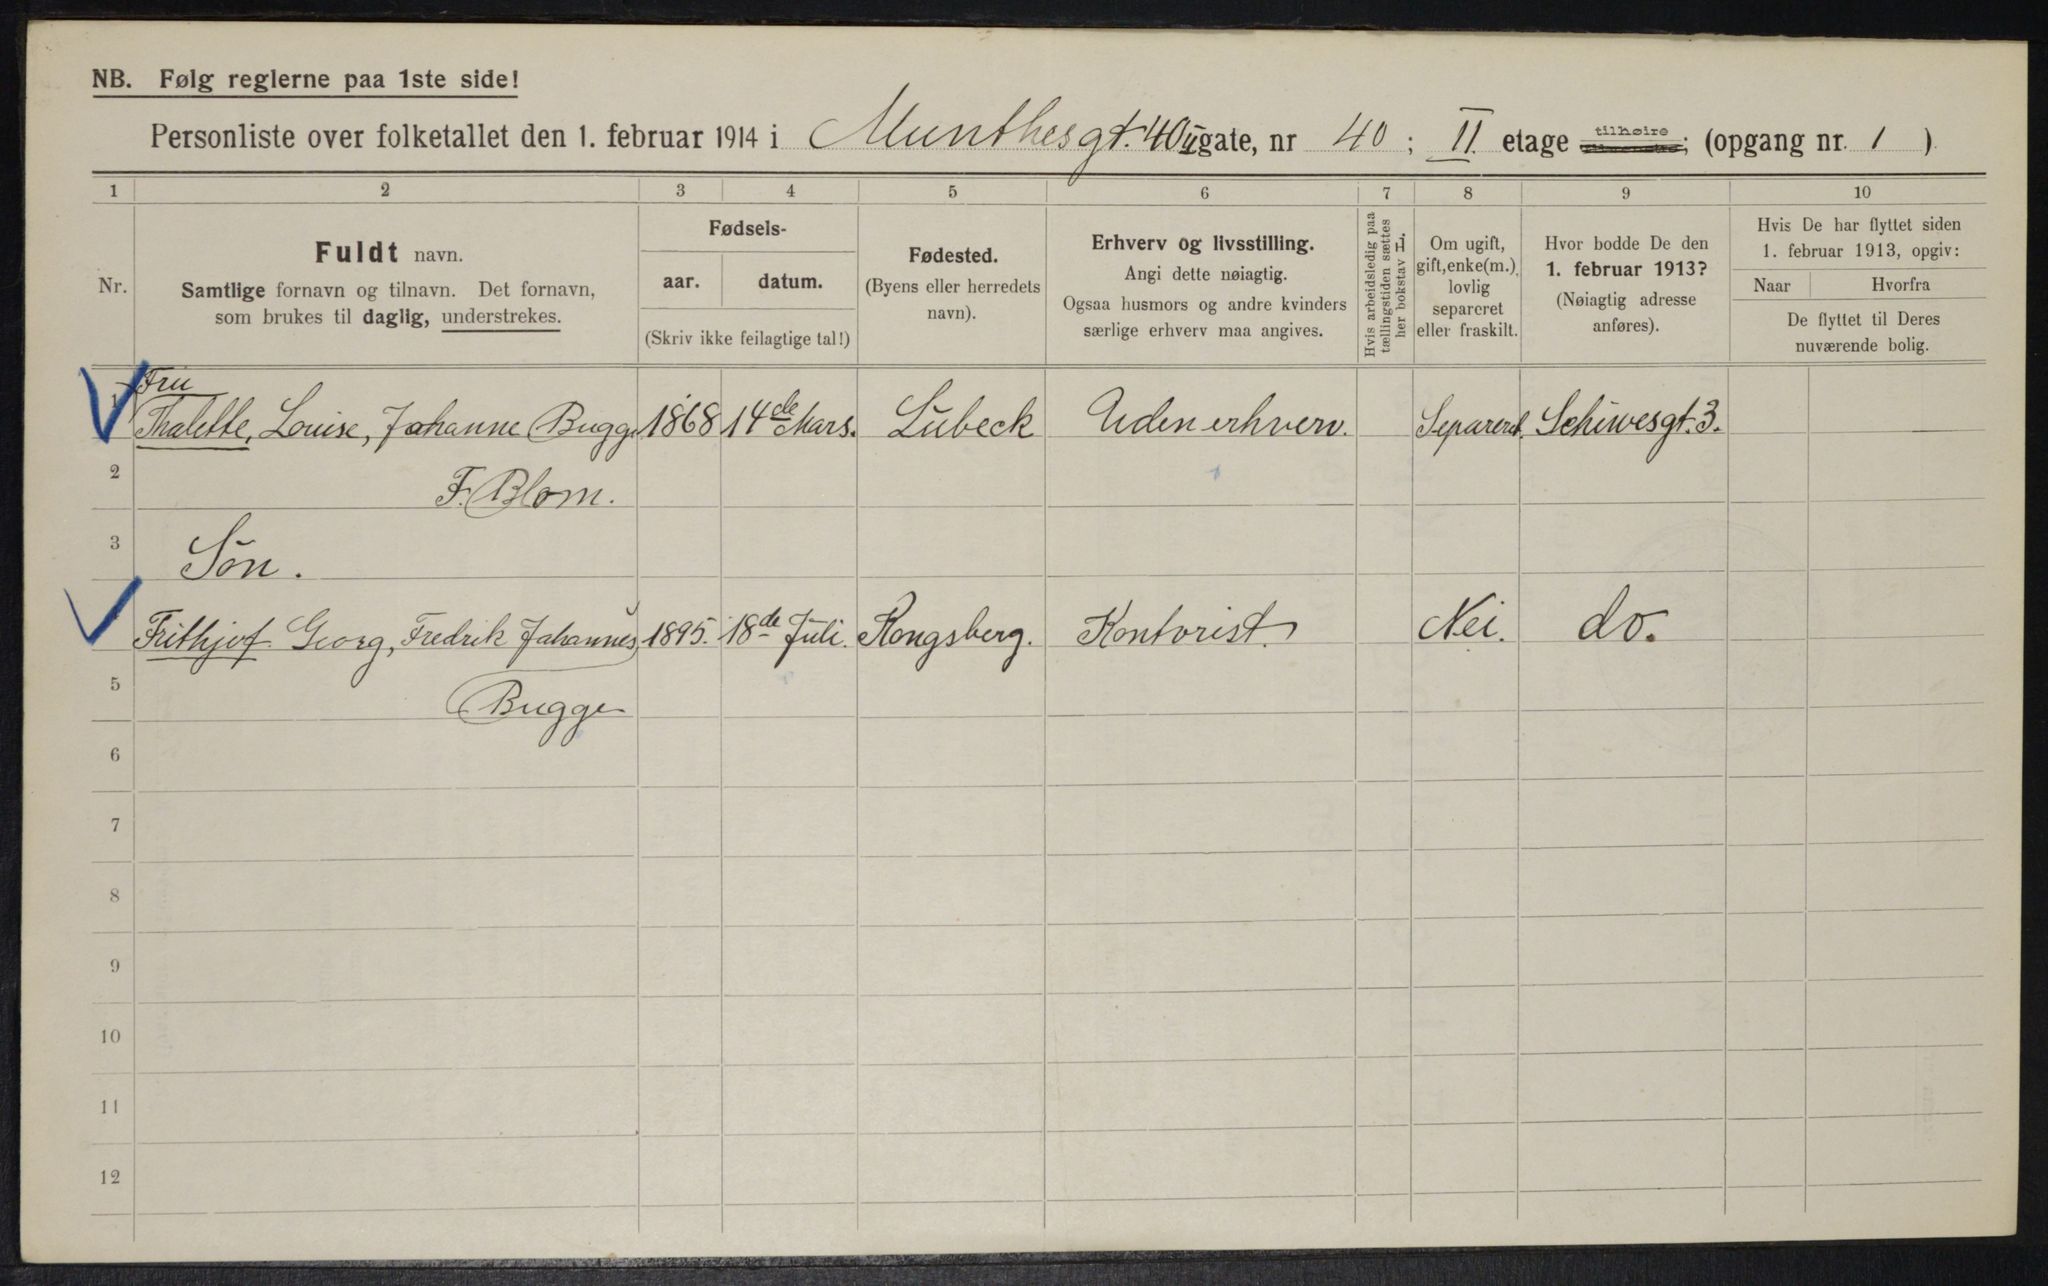 NB. Følg reglerne paa 1ste side!
Personliste over folketallet den 1. februar 1914 i Munthesgt. 40 II gate, nr 40 ; II. etage tilhøire ; (opgang nr. 1 )
1 2 3 4 5 6 7 8 9 10
Nr.
Fuldt navn.
Samtlige fornavn og tilnavn. Det fornavn,
som brukes til daglig, understrekes.
Fødsels-
aar. datum.
(Skriv ikke feilagtige tal!)
Fødested.
(Byens eller herredets
navn).
Erhverv og livsstilling.
Angi dette nøiagtig.
Ogsaa husmors og andre kvinders
særlige erhverv maa angives.
Hvis arbeidsledig paa
tællingstiden sættes
her bokstav L.
Om ugift,
gift, enke(m.),
lovlig
separeret
eller fraskilt.
Hvor bodde De den
1. februar 1913?
(Nøiagtig adresse
anføres).
Hvis De har flyttet siden
1. februar 1913, opgiv:
Naar Hvorfra
De flyttet til Deres
nuværende bolig.
Fru
1 Thalette, Louise, Johanne Bugge 1868 14de Mars. Lübeck Uden erhverv. Separeret. Schiwesgt. 3.
2 F. Blom.
3 Sön.
Frithjof Georg, Fredrik Johannes 1895. 18de Juli. Kongsberg. Kontorist. Nei. do.
5 Bugge
6
7
8
9
10
11
12